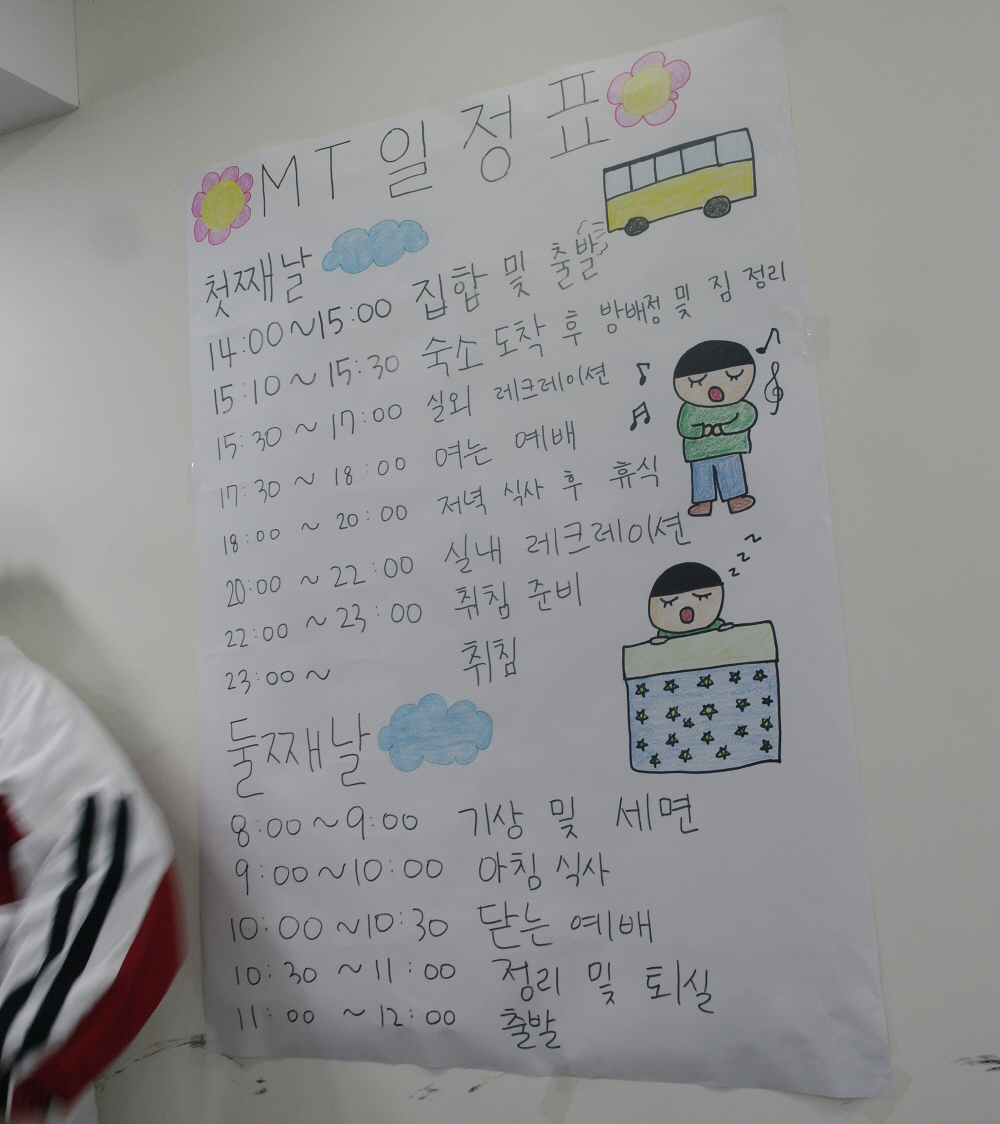 MT 일정표
첫째날
14:00~15:00 집합 및 출발
15:10~15:30 숙소 도착 후 방배정 및 짐 정리
15:30~17:00 실외 레크레이션
17:30~18:00 여는 예배
18:00~20:00 저녁 식사 후 휴식
20:00~22:00 실내 레크레이션
22:00~23:00 취침 준비
23:00~ 취침
z z z
둘째날
8:00~9:00 기상 및 세면
9:00~10:00 아침 식사
10:00~10:30 닫는 예배
10:30~11:00 정리 및 퇴실
11:00~12:00 출발